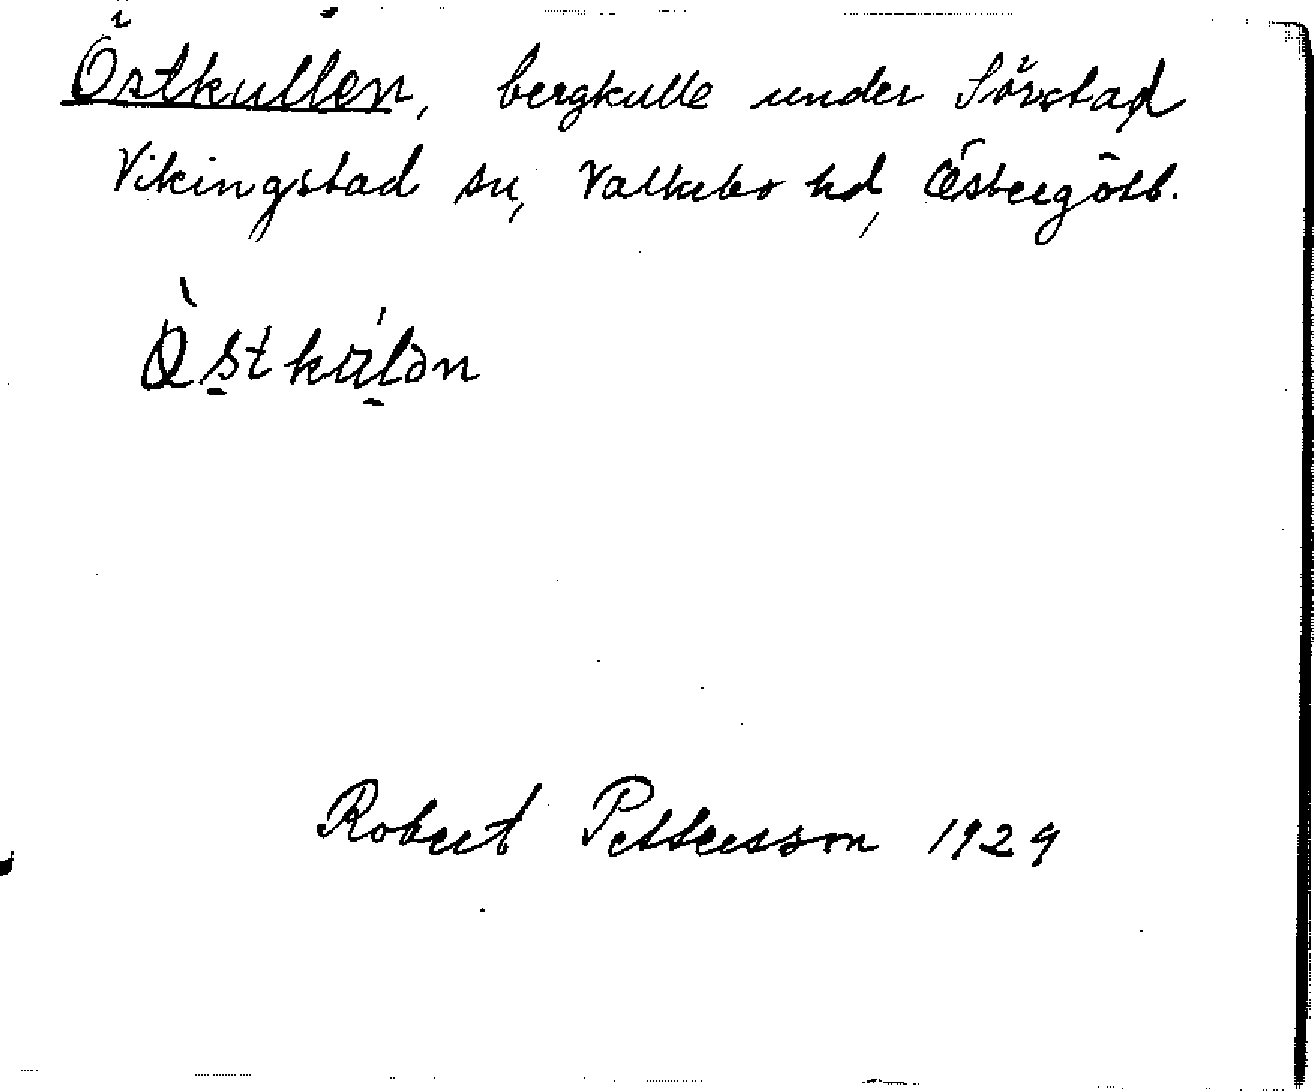 Östkullen, bergkulle under Sörstad
Vikingstad sn, Valkebo hd, Östergötl.
Robert Pettersson 1929